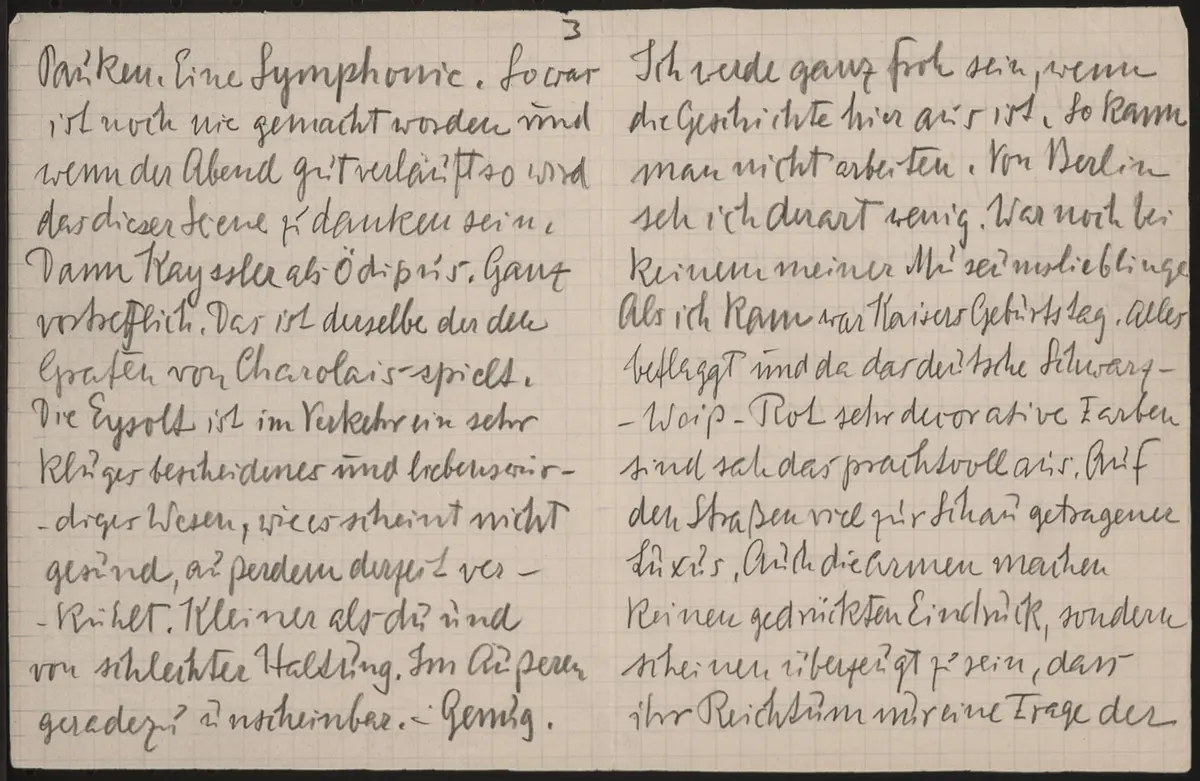 3
Pauken. Eine Symphonie. So was
ist noch nie gemacht worden und
wenn der Abend gut verläuft so wird
das dieser Scene zu danken sein.
Dann Kayssler als Ödipus. Ganz
vortrefflich. Das ist derselbe der den
Grafen von Charolais spielt.
Die Eysolt ist im Verkehr ein sehr
kluges bescheidenes und liebenswür-
-diges Wesen, wie es scheint nicht
gesund, außerdem derzeit ver-
-kühlt. Kleiner als du und
von schlechter Haltung. Im Äußeren
geradezu unscheinbar. - Genug.
Ich werde ganz froh sein, wenn
die Geschichte hier aus ist. So kann
man nicht arbeiten. Von Berlin
seh ich derart wenig. War noch bei
keinem meiner Museumslieblinge
Als ich kam war Kaisers Geburtstag. Alles
beflaggt und da das deutsche Schwarz-
-Weiß-Rot sehr decorative Farben
sind sah das prachtvoll aus. Auf
den Straßen viel zur Schau getragener
Luxus. Auch die Armen machen
keinen gedrückten Eindruck, sondern
scheinen überzeugt zu sein, dass
ihr Reichtum nur eine Frage der